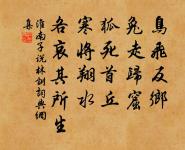 鳥飛反鄉
兔走歸窟
狐死首丘
寒將翔水
各哀其所生
淮南子説林訓詞典網
集